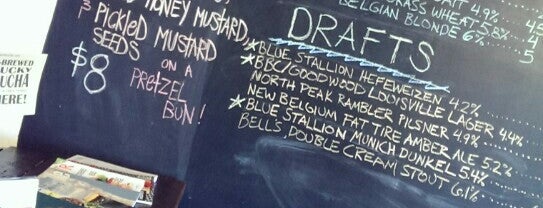 HONEY MUSTARD,
& PICKLED MUSTARD
SEEDS
ON A
$8
PRETZEL
BUN!
-BREWED
UCKY
UCHA
HERE!
4.9%
GRASS WHEAT-5.8%
BELGIAN BLONDE 6%
4
5
DRAFTS
★BLUE STALLION HEFEWEIZEN 4.2%
★BBC/GOODWOOD LOUISVILLE LAGER 4.4%
NORTH PEAK RAMBLER PILSNER 4.9%
NEW BELGIUM FAT TIRE AMBER ALE 5.2%
★BLUE STALLION MUNICH DUNKEL 5.4%
BELLS, DOUBLE CREAM STOUT 6.1%